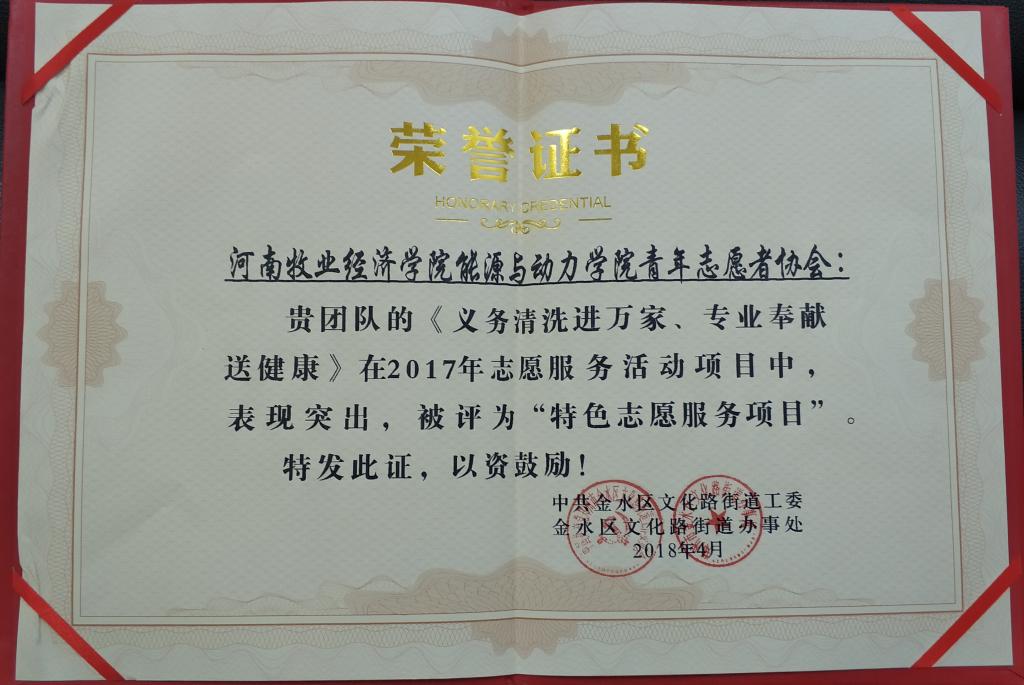 荣誉证书
HONORARY CREDENTIAL
河南牧业经济学院能源与动力学院青年志愿者协会：
贵团队的《义务清洗进万家、专业奉献
送健康》在2017年志愿服务活动项目中，
表现突出，被评为“特色志愿服务项目”。
特发此证，以资鼓励！
中共金水区文化路街道工委
金水区文化路街道办事处
2018年4月